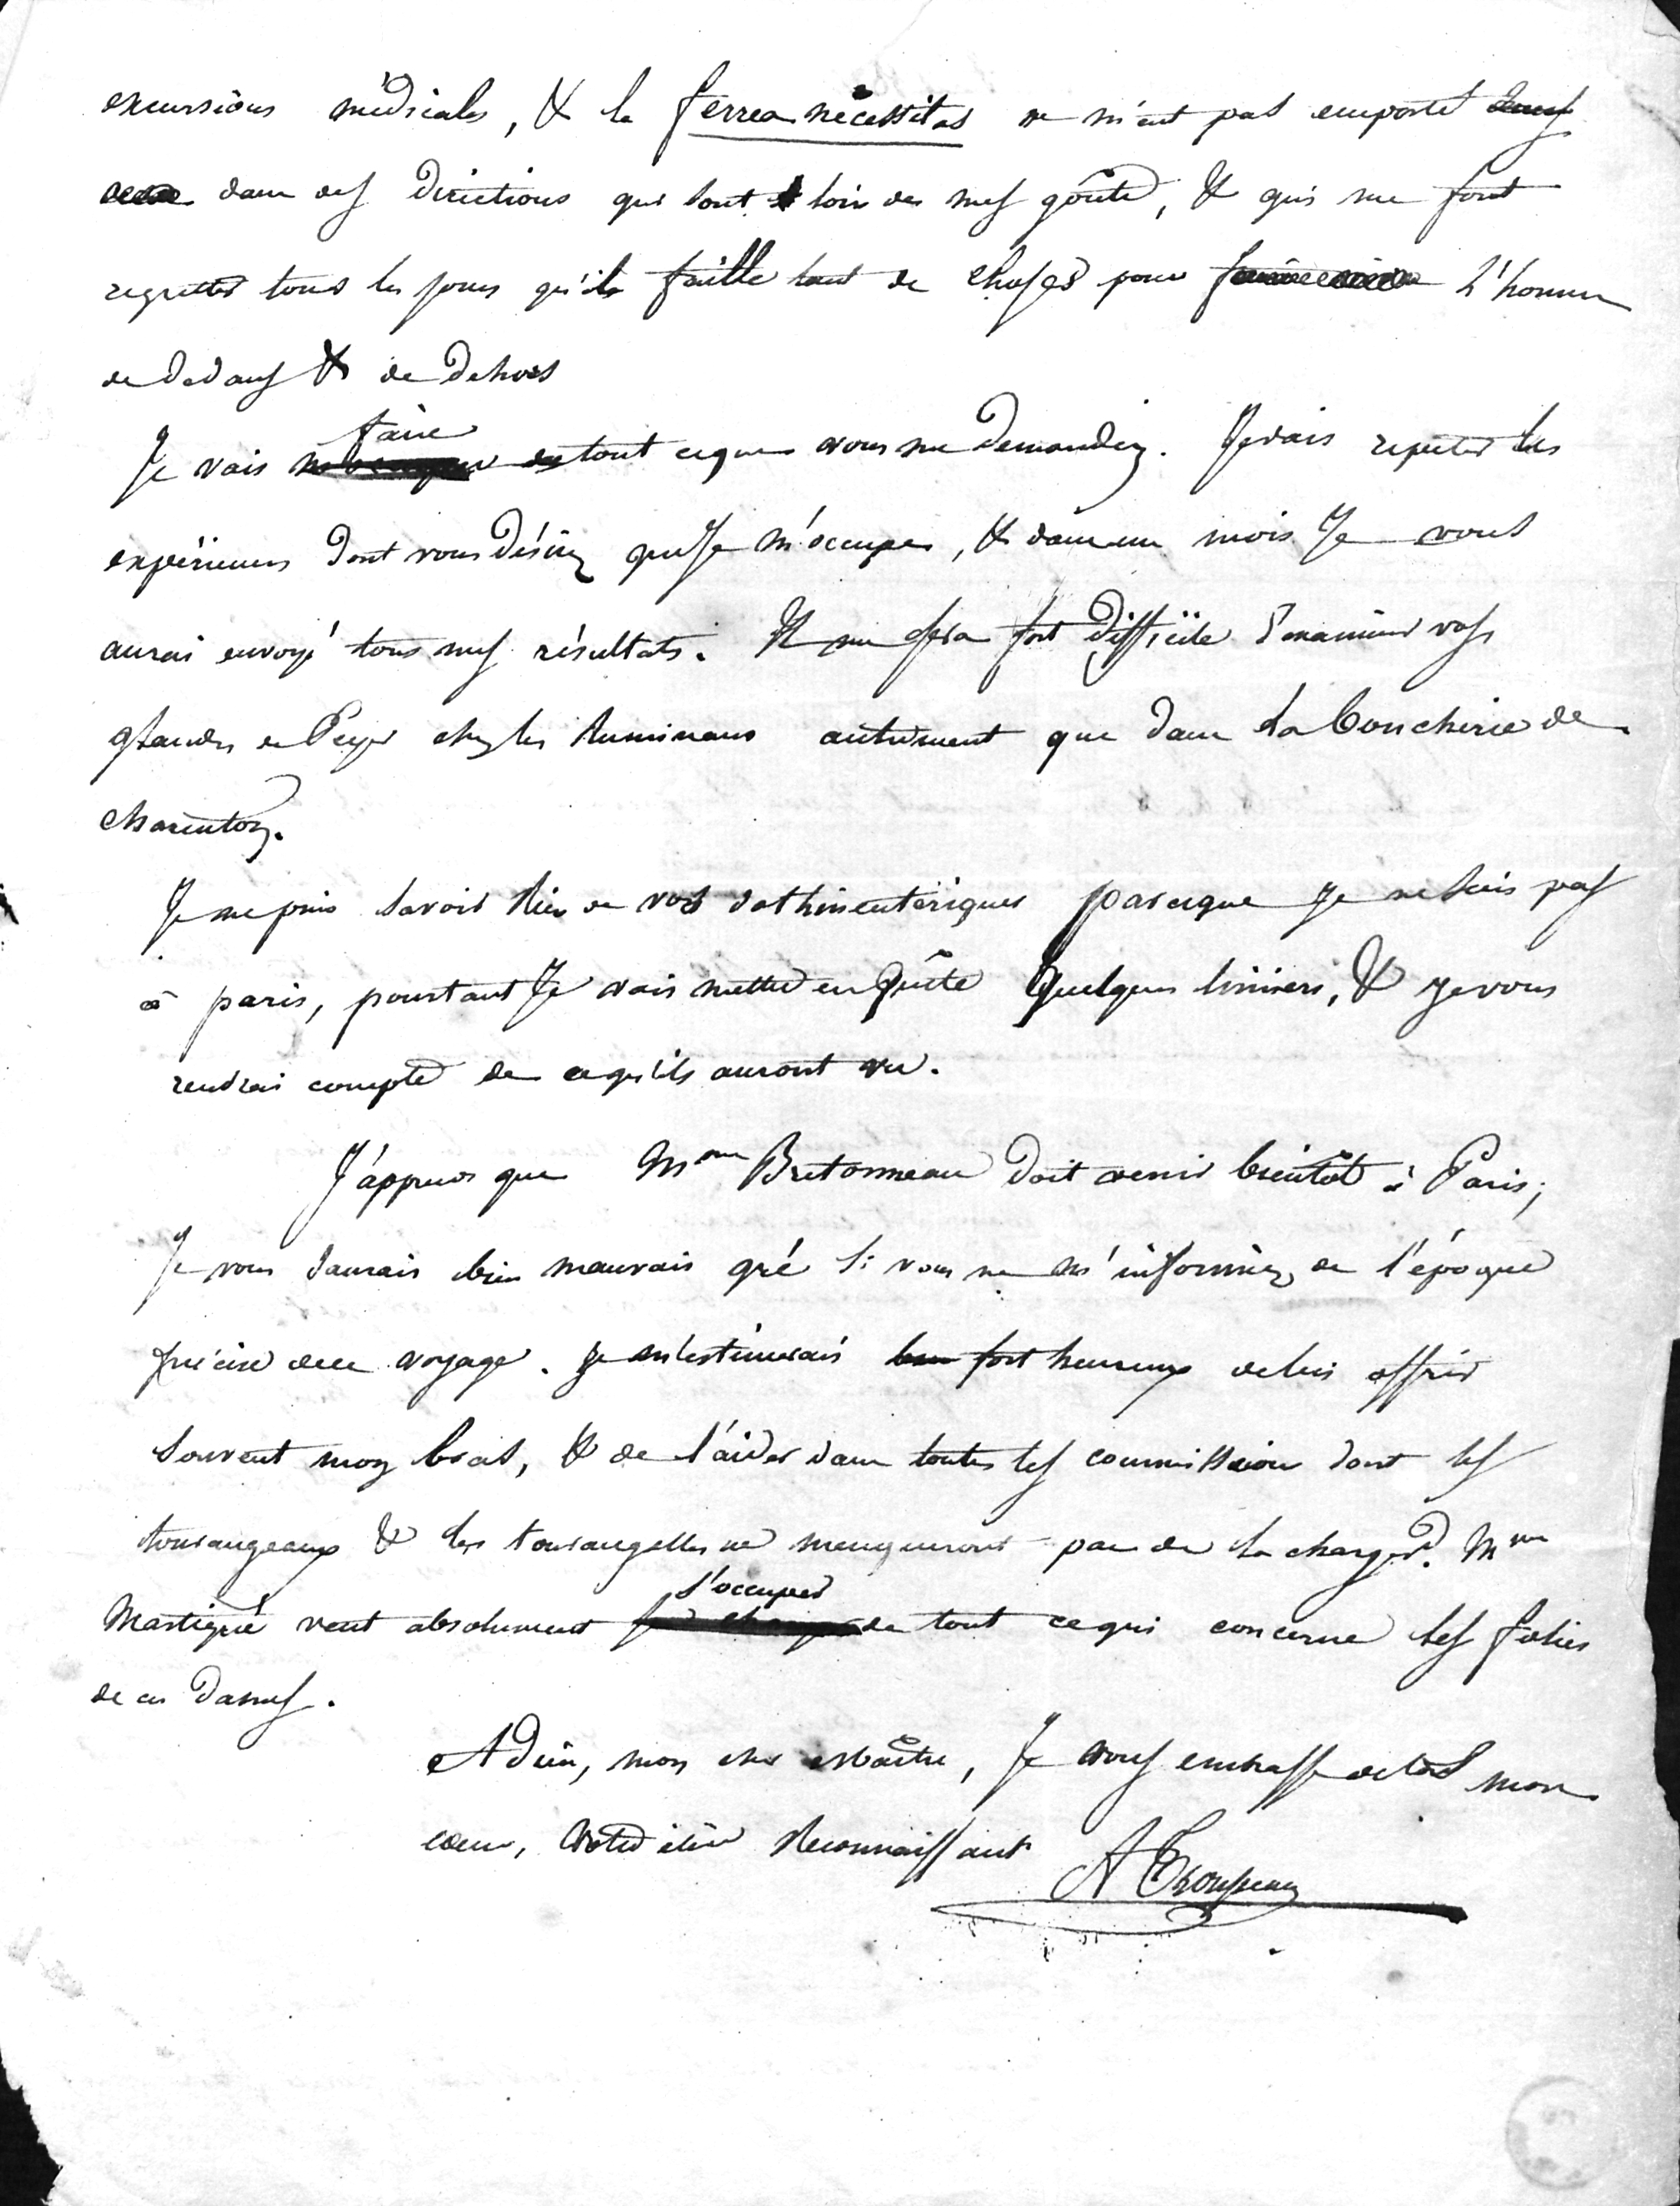 excursions médicales, & la ferrea necessitas ne m'eut pas emporté
dans des directions qui sont loin de mes goûts, & qui me font
regretter tous les jours qu'il faille tant de choses pour l'homme
de dedans & de dehors
Je vais faire tout ce que vous me demandez. Je vais repeter les
expériences dont vous désirez que je m'occupe, & dans un mois Je vous
aurai envoyé tous mes résultats. Il me sera fort difficile d'examiner vos
glandes de Peyer chez les ruminans autrement que dans la boucherie de
charenton.
Je ne puis savoir rien de vos dothinentériques parceque je ne suis pas
à paris, pourtant Je vais mettre en quête quelques limiers, & je vous
rendrai compte de ce qu'ils auront vu.
J'apprens que Mme Bretonneau doit venir bientôt à Paris;
Je vous saurais bien mauvais gré si vous ne m'informiez de l'époque
précise de ce voyage. je m'estimerais fort heureux de lui offrir
souvent mon bras, & de l'aider dans toutes les commissions dont les
tourangeaux & les tourangelles ne manqueront pas de la charger. Mme
Martigné veut absolument s'occuper de tout ce qui concerne les folies
de ces dames.
Adieu, mon cher Maître, Je vous embrasse de tout mon
coeur, votre élève reconnaissant
A Trousseau